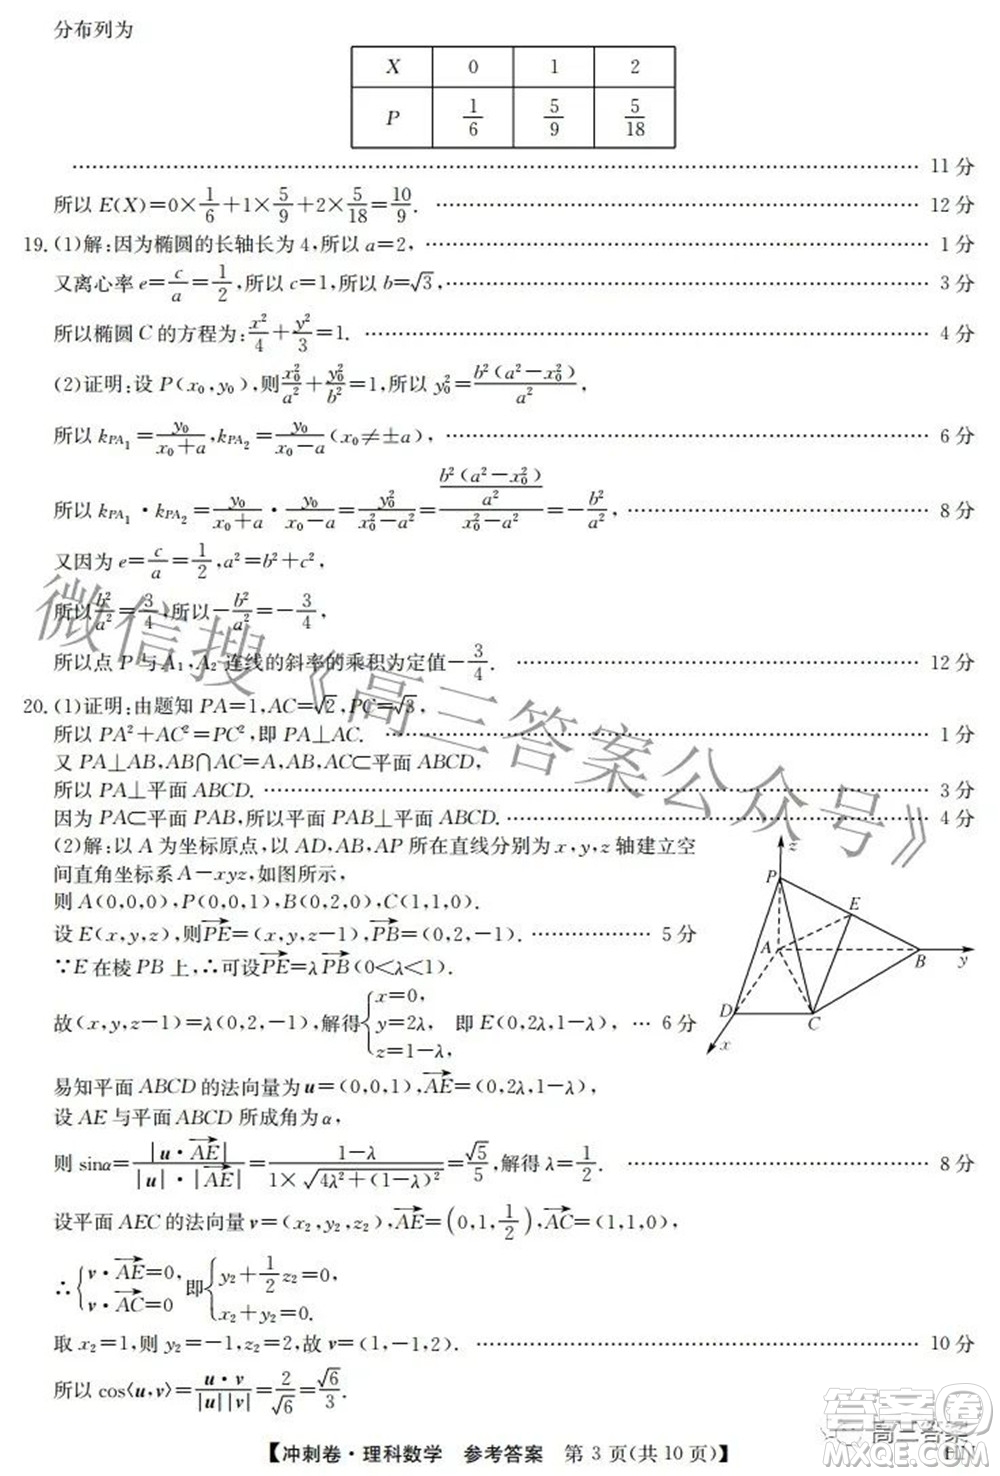 分布列为
X 0 1 2
P 1/6 5/9 5/18
………… 11 分
所以 E(X)=0×1/6+1×5/9+2×5/18=10/9. ………… 12 分
19.(1)解:因为椭圆的长轴长为 4,所以 a=2, ………… 1 分
又离心率 e=c/a=1/2,所以 c=1,所以 b=√3, ………… 3 分
所以椭圆 C 的方程为:x²/4+y²/3=1. ………… 4 分
(2)证明:设 P(x₀,y₀),则x₀²/a²+y₀²/b²=1,所以 y₀²=b²(a²-x₀²)/a²,
所以 k_PA₁=y₀/(x₀+a),k_PA₂=y₀/(x₀-a)(x₀≠±a), ………… 6 分
所以 k_PA₁·k_PA₂=y₀/(x₀+a)·y₀/(x₀-a)=y₀²/(x₀²-a²)=(b²(a²-x₀²)/a²)/(x₀²-a²)=-b²/a², ………… 8 分
又因为 e=c/a=1/2,a²=b²+c²,
所以b²/a²=3/4,所以-b²/a²=-3/4,
所以点 P 与 A₁,A₂ 连线的斜率的乘积为定值-3/4. ………… 12 分
20.(1)证明:由题知 PA=1,AC=√2,PC=√3,
所以 PA²+AC²=PC²,即 PA⊥AC. ………… 1 分
又 PA⊥AB,AB∩AC=A,AB,AC⊂平面 ABCD,
所以 PA⊥平面 ABCD. ………… 3 分
因为 PA⊂平面 PAB,所以平面 PAB⊥平面 ABCD. ………… 4 分
(2)解:以 A 为坐标原点,以 AD,AB,AP 所在直线分别为 x,y,z 轴建立空
间直角坐标系 A-xyz,如图所示,
则 A(0,0,0),P(0,0,1),B(0,2,0),C(1,1,0).
设 E(x,y,z),则PE→=(x,y,z-1),PB→=(0,2,-1). ………… 5 分
∵E 在棱 PB 上,∴可设PE→=λPB→(0<λ<1).
故(x,y,z-1)=λ(0,2,-1),解得{x=0, y=2λ, z=1-λ, 即 E(0,2λ,1-λ), … 6 分
易知平面 ABCD 的法向量为 u=(0,0,1),AE→=(0,2λ,1-λ),
设 AE 与平面 ABCD 所成角为 α,
则 sinα=|u·AE→|/(|u|·|AE→|)=(1-λ)/(1×√(4λ²+(1-λ)²))=√5/5,解得 λ=1/2. ………… 8 分
设平面 AEC 的法向量 v=(x₂,y₂,z₂),AE→=(0,1,1/2),AC→=(1,1,0),
∴{v·AE→=0, v·AC→=0 即{y₂+1/2z₂=0, x₂+y₂=0.
取 x₂=1,则 y₂=-1,z₂=2,故 v=(1,-1,2). ………… 10 分
所以 cos⟨u,v⟩=u·v/(|u||v|)=2/√6=√6/3.
z
P
E
A
B
y
D
C
x
微信搜《高三答案公众号》
答案圈
MXQE.COM
高三答案
【冲刺卷·理科数学 参考答案 第 3 页(共 10 页)】
HN